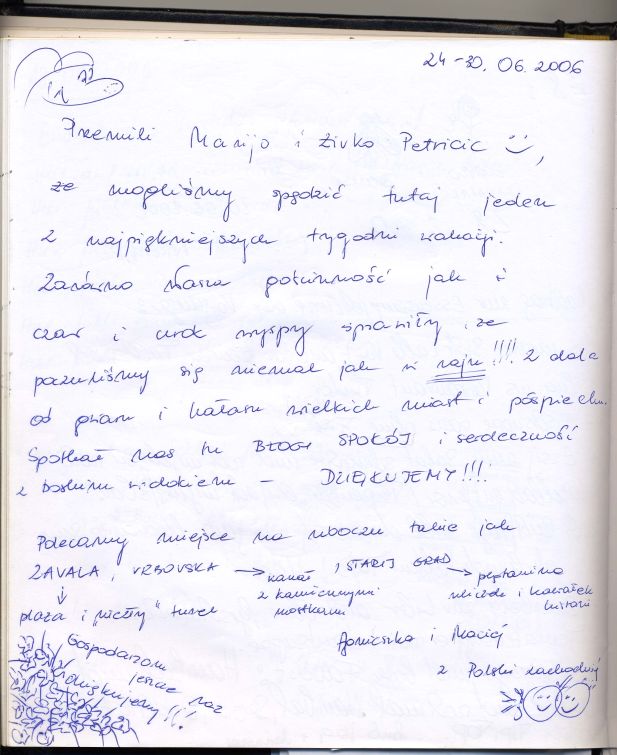 24-30.06.2006
Przemili Marijo i Živko Petricic
że mogliśmy spędzić tutaj jeden
z najpiękniejszych tygodni wakacji.
Zarówno Wasza gościnność jak i
czar i urok wyspy sprawiły, że
poczuliśmy się niemal jak w raju!!!! Z dala
od gwaru i hałasu wielkich miast i pośpiechu.
Spotkał nas tu BŁOGI SPOKÓJ i serdeczność
z boskim widokiem - DZIĘKUJEMY!!!
Polecamy miejsce na uboczu takie jak
ZAVALA, VRBOVSKA → kanał z kamiennymi mostkami
i STARIJ GRAD → plątanina uliczek i kawałek historii
plaża i tunel
Agnieszka i Maciej
z Polski zachodniej
Gospodarzom
jeszcze raz
dziękujemy!!!